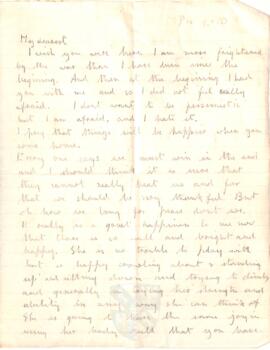 My dearest
I wish you were here. I am more frightened
by the war than I have been since the
beginning. And then at the beginning I had
you with me and so I did not feel really
afraid. I don't want to be pessimistic
but I am afraid, and I hate it.
I pray that things will be happier when you
come home.
Every one says we must win in the end
and I should think it is more that
they cannot really beat us and for
that we should be very thankful. But
oh how we long for peace don't we.
It really is a great happiness to me now
that is so well and bright and
happy. She is no trouble to play with
but is happy crawling about & standing
up and sitting down and trying to climb
and generally trying her strength and
ability in any way she can think of.
She is going to have the same joy in
using her body well that you have.